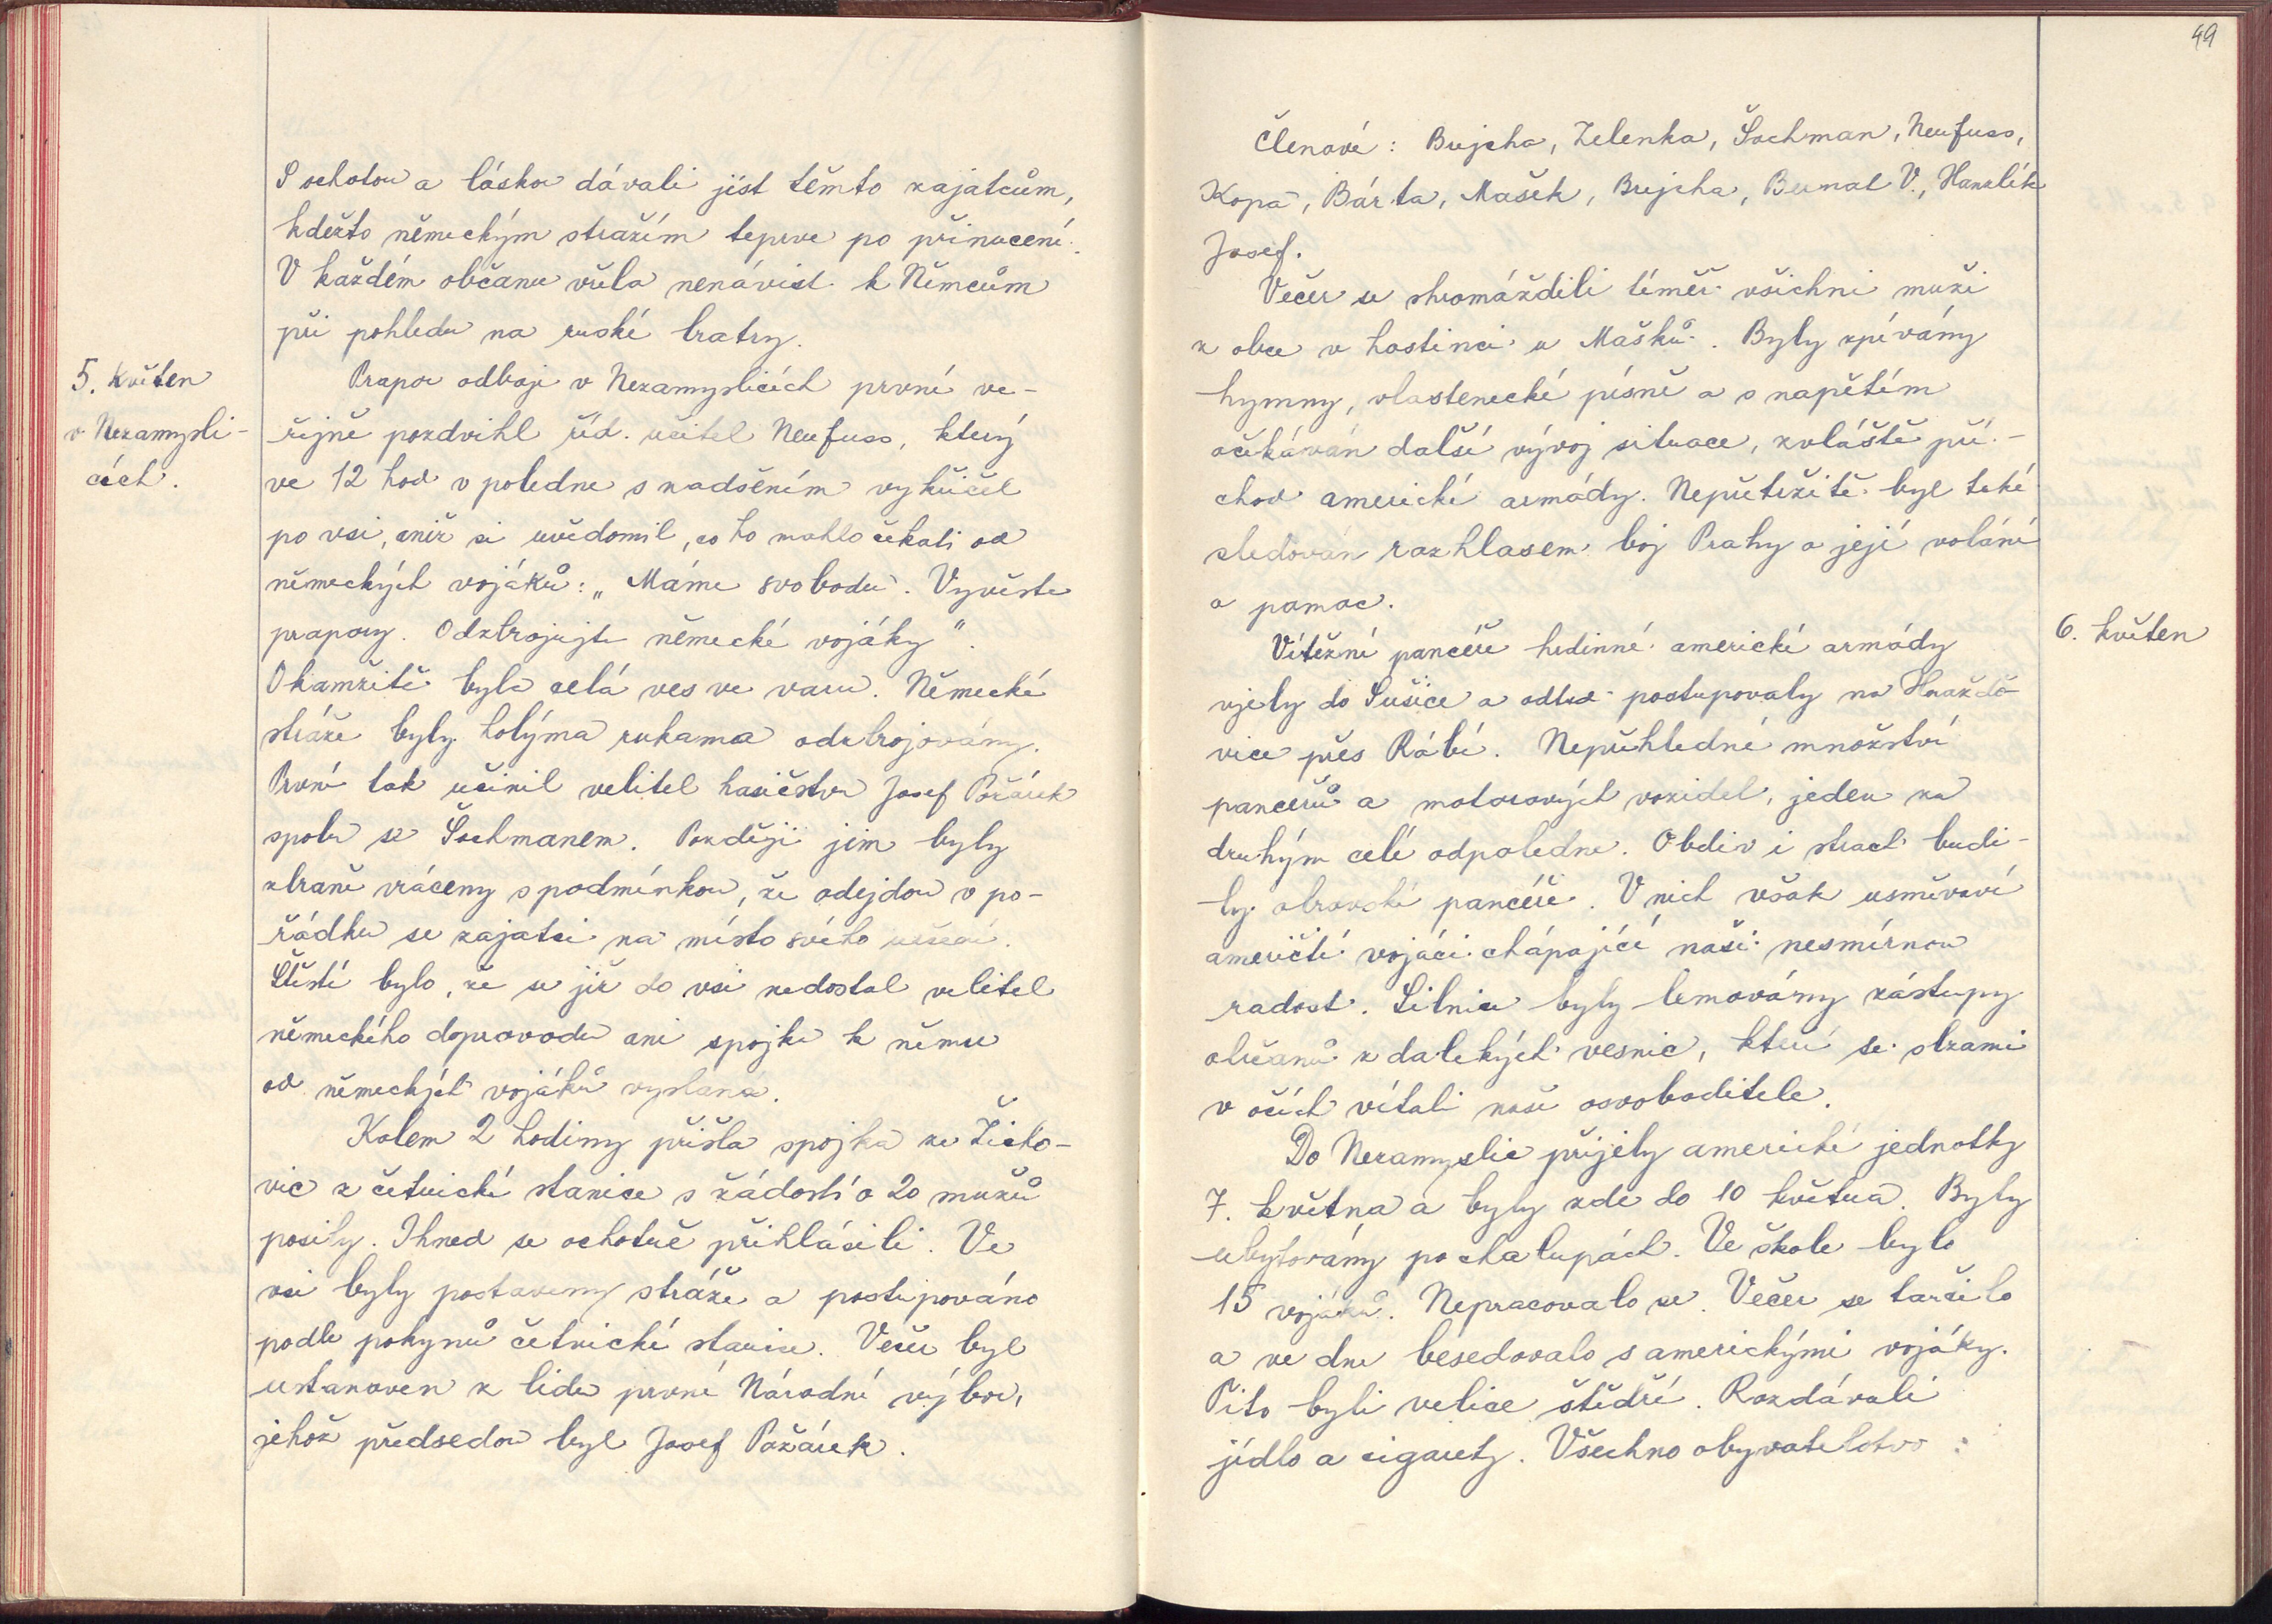 S ochotou a láskou dávali jíst těmto zajatcům,
kdežto německým strážím teprve po přinucení.
V každém občanu vřela nenávist k Němcům
při pohledu na ruské bratry.
5. květen
v Nezamysli-
cích.
Prapor odboje v Nezamyslicích první ve-
řejně pozdvihl říd. učitel Neufuss, který
ve 12 hod v poledne s nadšením vykřičel
po vsi, aniž si uvědomil, co ho mohlo čekati od
německých vojáků: „Máme svobodu. Vyvěste
prapory. Odzbrojujte německé vojáky".
Okamžitě byla celá ves ve varu. Německé
stráže byly holýma rukama odzbrojovány.
První tak učinil velitel hasičstva Josef Požárek
spolu se Šochmanem. Později jim byly
zbraně vráceny s podmínkou, že odejdou v po-
řádku se zajatci na místo svého určení.
Štěstí bylo, že se již do vsi nedostal velitel
německého doprovodu ani spojka k němu
od německých vojáků vyslaná.
Kolem 2 hodiny přišla spojka ze Žicho-
vic z četnické stanice s žádostí o 20 mužů
posily. Ihned se ochotně přihlásili. Ve
vsi byly postaveny stráže a postupováno
podle pokynů četnické stanice. Večer byl
ustanoven z lidu první Národní výbor,
jehož předsedou byl Josef Požárek.
49
Členové: Brejcha, Zelenka, Šochman, Neufuss,
Kopa, Bárta, Mašek, Brejcha, Bernat V., Hanzlík
Josef.
Večer se shromáždili téměř všichni muži
z obce v hostinci u Mašků. Byly zpívány
hymny, vlastenecké písně a s napětím
očekáván další vývoj situace, zvláště pří-
chod americké armády. Nepřetržitě byl také
sledován rozhlasem boj Prahy a její volání
o pomoc.
6. květen
Vítězné pancéře hrdinné americké armády
vjely do Sušice a odtud postupovaly na Horažďo-
vice přes Rábí. Nepřehledné množství
pancéřů a motorových vozidel, jeden za
druhým celé odpoledne. Obdiv i strach budi-
ly obrovské pancéře. V nich však usměvaví
američtí vojáci chápající naši nesmírnou
radost. Silnice byly lemovány zástupy
občanů z dalekých vesnic, kteří se slzami
v očích vítali naše osvoboditele.
Do Nezamyslic přijely americké jednotky
7. května a byly zde do 10 května. Byly
ubytovány po chalupách. Ve škole bylo
15 vojáků. Nepracovalo se. Večer se tančilo
a ve dne besedovalo s americkými vojáky.
Tito byli velice štědří. Rozdávali
jídlo a cigarety. Všechno obyvatelstvo